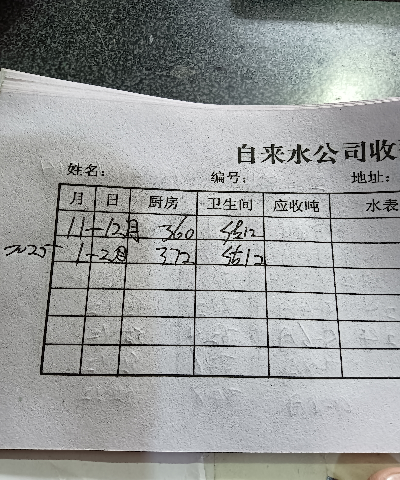 自来水公司收
姓名： 编号： 地址：
月 日 厨房 卫生间 应收吨 水表
11-12月 360 估12
2025 1-2月 372 估12